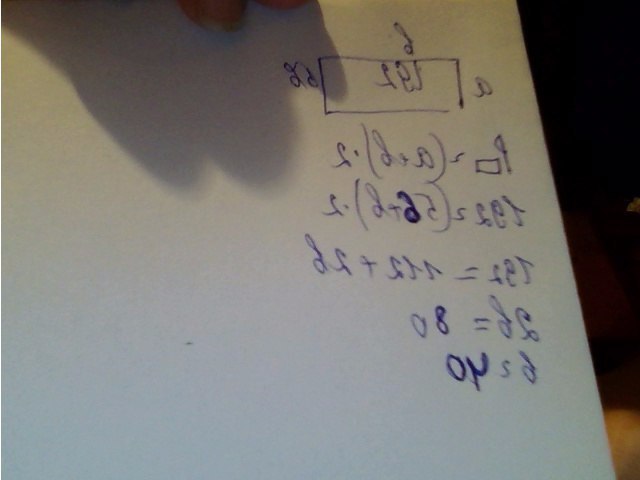 b
a 192 56
P▭ = (a+b)·2
192=(56+b)·2
192 = 112 + 2b
2b = 80
b = 40